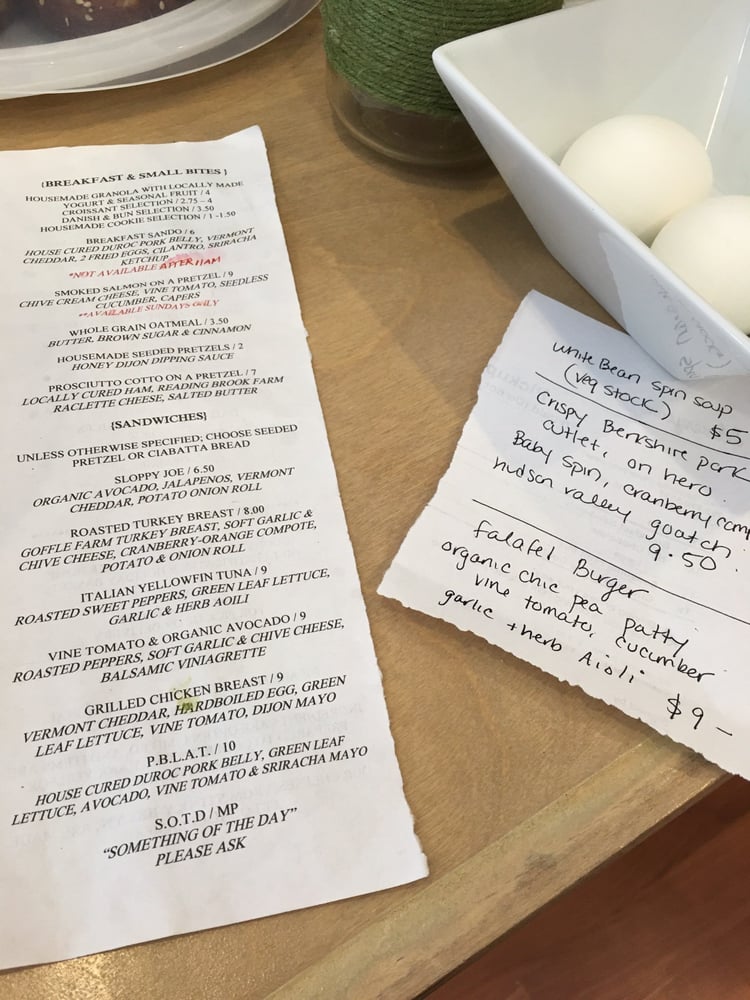 {BREAKFAST & SMALL BITES }
HOUSEMADE GRANOLA WITH LOCALLY MADE
YOGURT & SEASONAL FRUIT / 4
CROISSANT SELECTION / 2.75 – 4
DANISH & BUN SELECTION / 3.50
HOUSEMADE COOKIE SELECTION / 1 -1.50
BREAKFAST SANDO / 6
HOUSE CURED DUROC PORK BELLY, VERMONT
CHEDDAR, 2 FRIED EGGS, CILANTRO, SRIRACHA
KETCHUP
*NOT AVAILABLE AFTER 11AM
SMOKED SALMON ON A PRETZEL / 9
CHIVE CREAM CHEESE, VINE TOMATO, SEEDLESS
CUCUMBER, CAPERS
**AVAILABLE SUNDAYS ONLY
WHOLE GRAIN OATMEAL / 3.50
BUTTER, BROWN SUGAR & CINNAMON
HOUSEMADE SEEDED PRETZELS / 2
HONEY DIJON DIPPING SAUCE
PROSCIUTTO COTTO ON A PRETZEL / 7
LOCALLY CURED HAM, READING BROOK FARM
RACLETTE CHEESE, SALTED BUTTER
{SANDWICHES}
UNLESS OTHERWISE SPECIFIED; CHOOSE SEEDED
PRETZEL OR CIABATTA BREAD
SLOPPY JOE / 6.50
ORGANIC AVOCADO, JALAPENOS, VERMONT
CHEDDAR, POTATO ONION ROLL
ROASTED TURKEY BREAST / 8.00
GOFFLE FARM TURKEY BREAST, SOFT GARLIC &
CHIVE CHEESE, CRANBERRY-ORANGE COMPOTE,
POTATO & ONION ROLL
ITALIAN YELLOWFIN TUNA / 9
ROASTED SWEET PEPPERS, GREEN LEAF LETTUCE,
GARLIC & HERB AOILI
VINE TOMATO & ORGANIC AVOCADO / 9
ROASTED PEPPERS, SOFT GARLIC & CHIVE CHEESE,
BALSAMIC VINIAGRETTE
GRILLED CHICKEN BREAST / 9
VERMONT CHEDDAR, HARDBOILED EGG, GREEN
LEAF LETTUCE, VINE TOMATO, DIJON MAYO
P.B.L.A.T. / 10
HOUSE CURED DUROC PORK BELLY, GREEN LEAF
LETTUCE, AVOCADO, VINE TOMATO & SRIRACHA MAYO
S.O.T.D / MP
"SOMETHING OF THE DAY"
PLEASE ASK
White Bean spin soup
(veg stock) $5
Crispy Berkshire pork
cutlet, on hero.
Baby spin, cranberry comp
hudson valley goat ch.
9.50
Falafel Burger
organic chic pea patty
vine tomato, cucumber
garlic + herb Aioli
$9 –